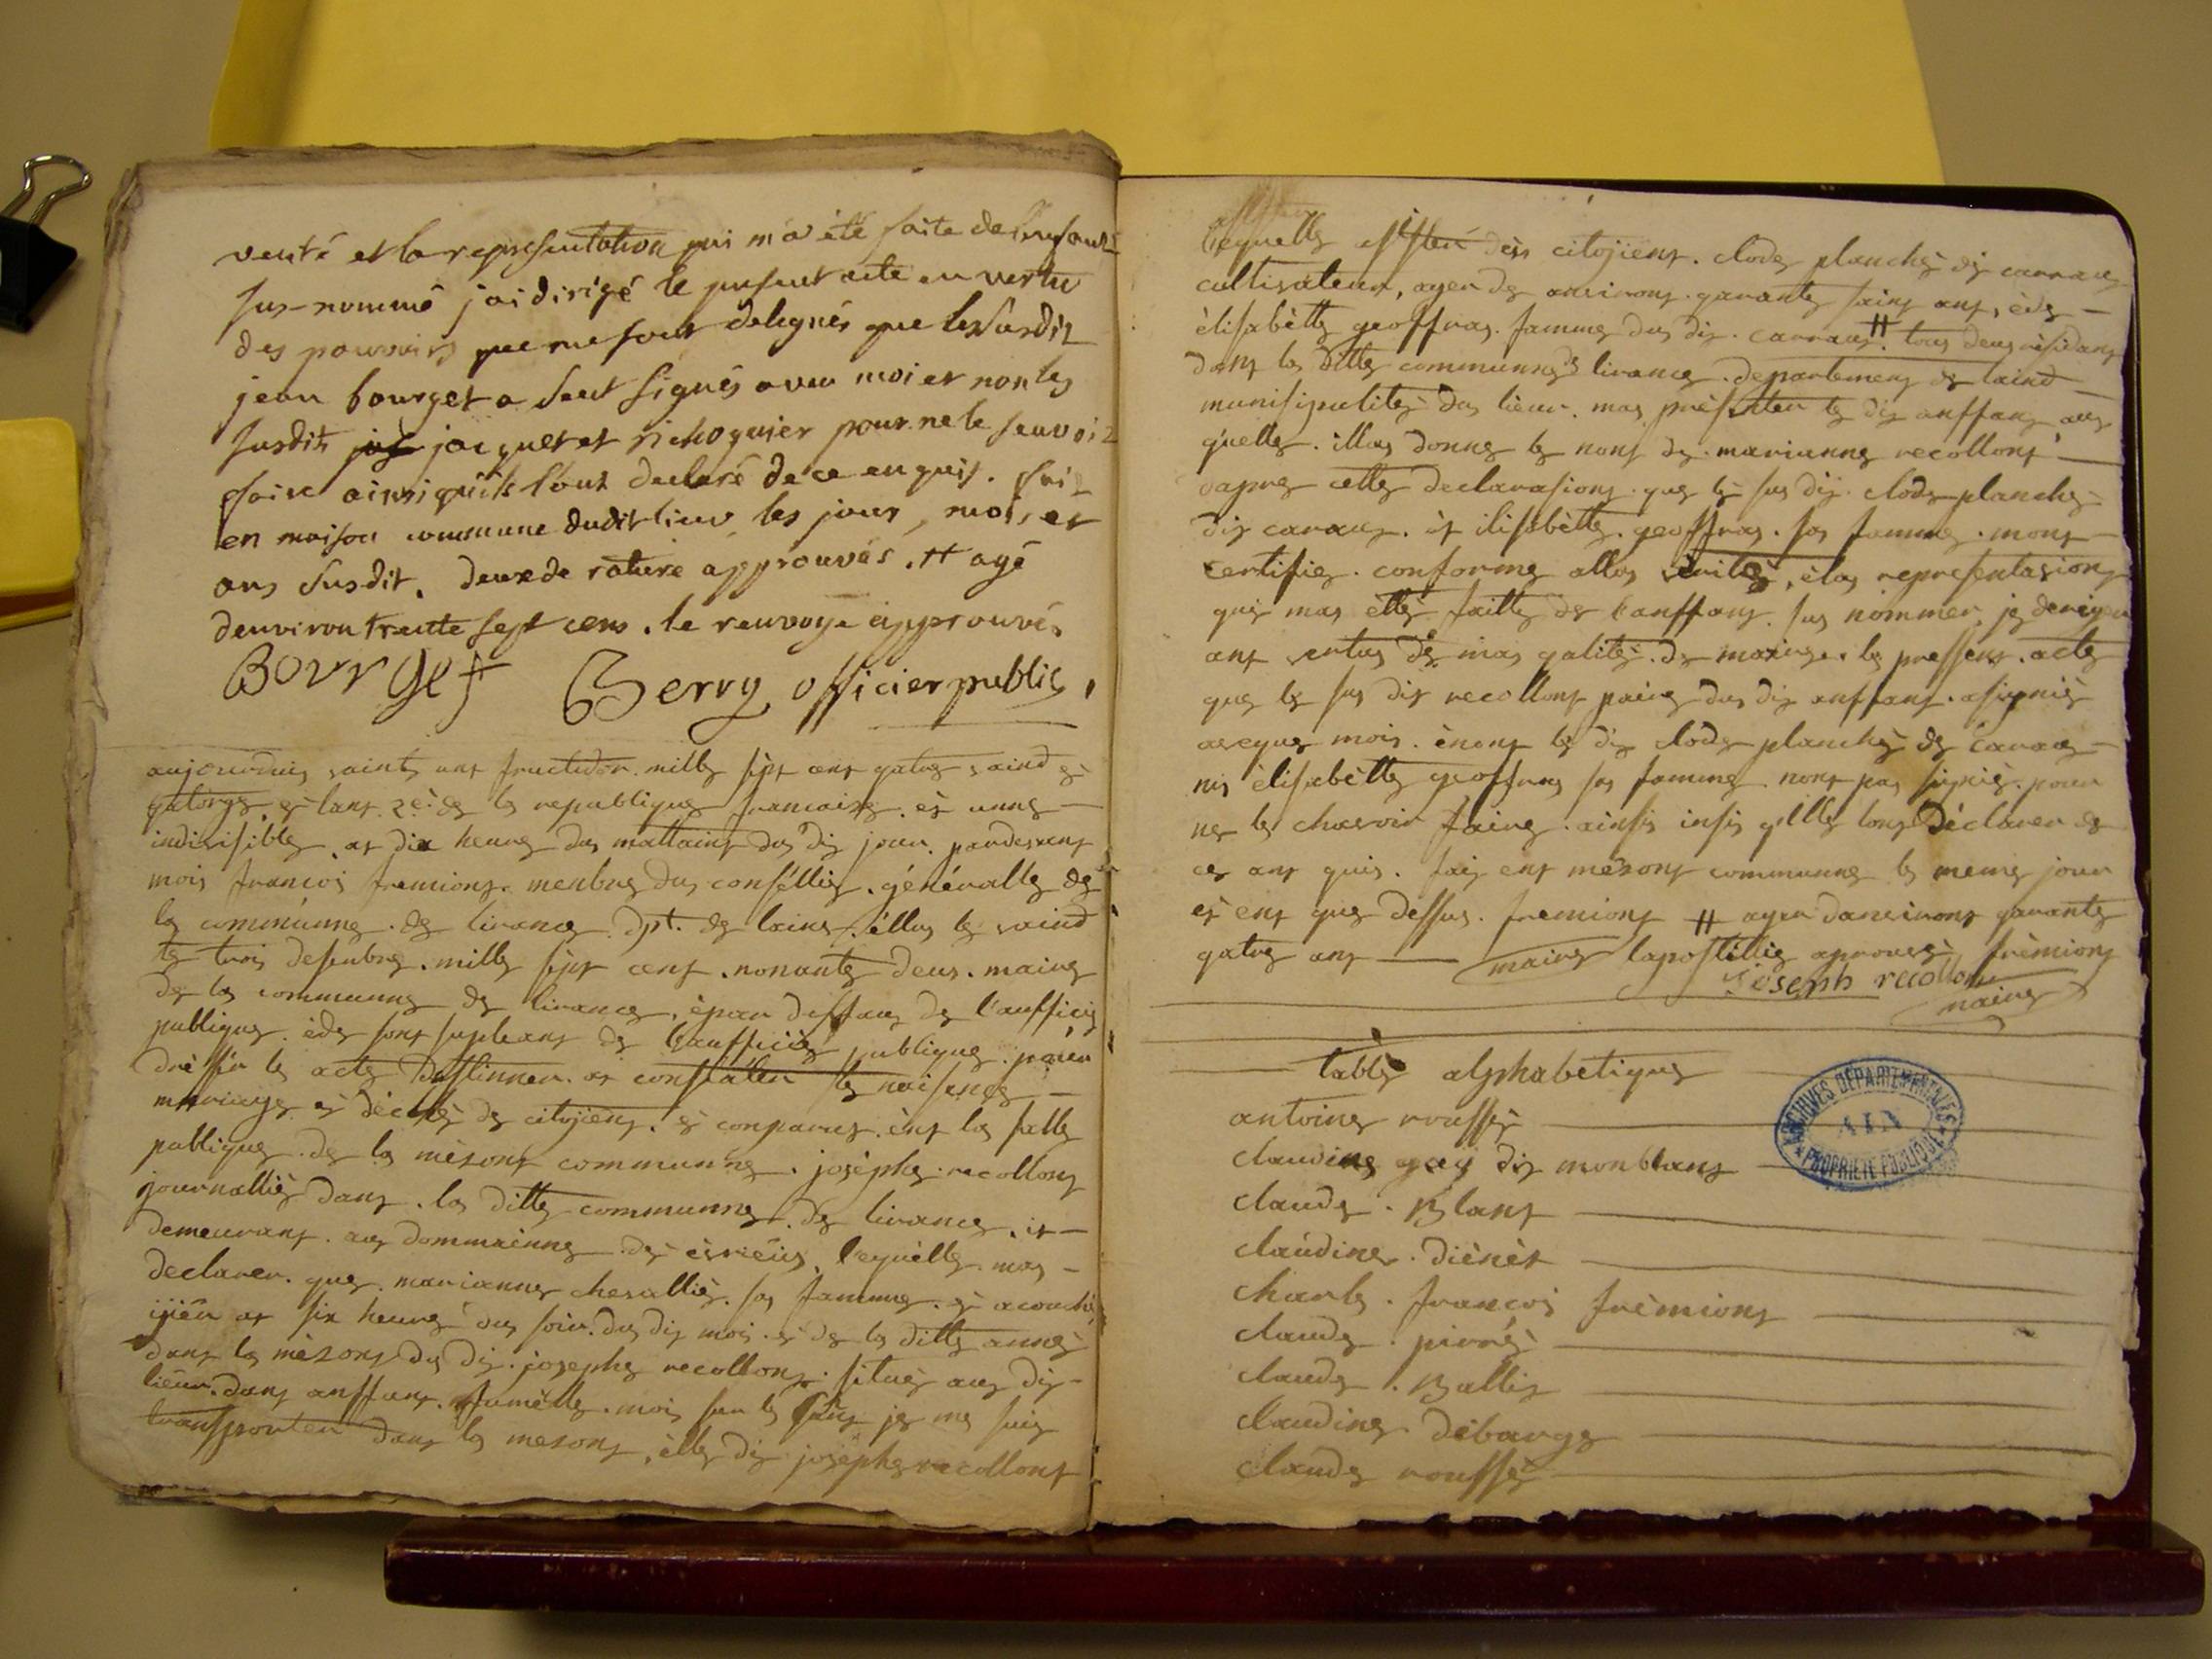 verité et la representation qui m'a été faite de l'enfant
sus-nommé j'ai dirigé le présent acte en vertu
des pouvoirs que me sont delegués que le susdit
jean bourget a seul signés avec moi et non les
susdits jacquet et richoguier pour ne le seavoir
faire ainsi qu'ils l'ont declaré de ce enquis. fait
en maison commune dudit lieu les jour, mois et
ans susdit. deux de rature approuvés. H agé
d'environ trente sept ans. le renvoye approuvés.
BOURGET Berry officier public,
aujourduis vaints ant fructidor mille sept cent
et lant 2e de la republique francaise et unne
indivisible at dix heure dus mattaint dus dit jour pardevant
mois francois fremiont menbre dus conséllie généralle de
la commune de livance dpt. de lains
te trois desenbre mille sept cent nonante deus maire
de la commune de livance épar deffaus de l'auffisié
publique éde sont supleant de l'auffisié publique pour
dressér les acte destinner at constatér les naisence
mariage et décès de citojient et conparus ént la salle
publique de la mésont communne joséphe recollont
journallié dans la ditte communne de livance it
demeurant aus dommainne des lequélle mas
declarer que marianne chevallié sa famme et acouché
ijiér at six heure dus soir dus dit mois et de la ditte année
dant la mésont du dit josephe recollont située aus dit
lieur dans anffant famélle mois sur le je me suis
transporter dans la mesont dit joséphe recollont
lequelle des citojient clode planché dit carraus
cultivateur, ayer de anviront garante saint ant, éde
élisabétte geoffras famme dus dit carraus H tous deus résidant
dant la ditte communne de livance departement de laind
munisipalité dus lieur mas présenter le dit anffant aus
quelle illas donne le nont de marianne recollont
dapre cette declarasiont que le sus dit clode planche
dit caraus it ilisabétte geoffras sas famme mont
certifie conforme allas vérité, élas representasiont
qui mas etté faitte de l'anffant sus nommer je derigeu
ant vertus de mas qalité de maire le pressent acte
que le sus dit recollont paire dus dit anffant asignié
aveque mois énont le dit clode planché de caraus
nis élisabétte geoffras sas famme nont pas signié pour
ne le chavoir faire ainsis insis qille lont déclarer de
ce ant quis. fait ent mésont communne le meme jour
et ent que dessus. fremiont H ayer danviront garante
qatre ant maire lapostillie aprouvé frémiont
Joseph recollon maire
table alphabetique
antoine roussé
claudine gay dit monblant
claude Blant
claudine diénét
charle françois frémiont
claude pivré
claude Ballit
claudine débarge
claude roussé
ARCHIVES DÉPARTEMENTALES
AIN
PROPRIÉTÉ PUBLIQUE